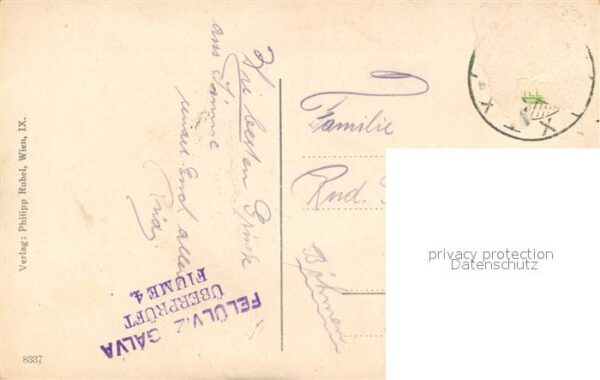 Die besten Grüße
aus Fiume
Familie
Rud.
Böhmen
privacy protection
Datenschutz
FELÜLV
GÁLVA
ÜBERPRÜFT
FIUME 4.
Verlag: Philipp Rubel, Wien, IX.
8337